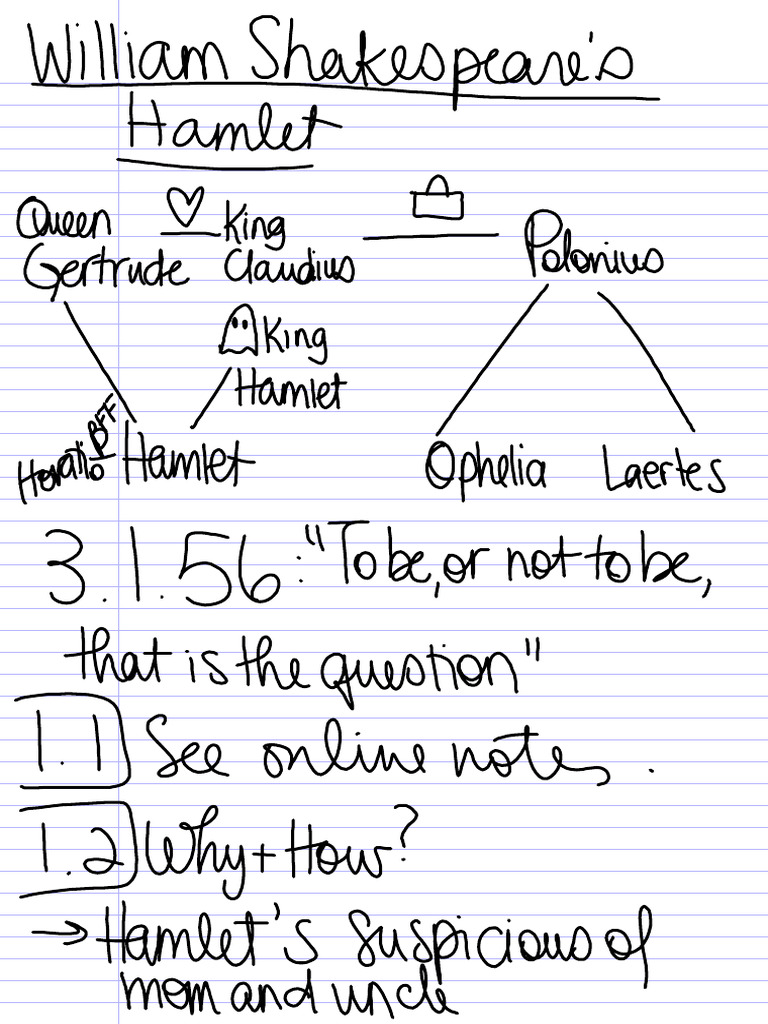 William Shakespeare's
Hamlet
Queen King
Gertrude Claudius Polonius
King
Hamlet
BFF
Horatio Hamlet Ophelia Laertes
3.1.56: "To be, or not to be,
that is the question"
1.1 See online notes.
1.2 Why + How?
→ Hamlet's suspicious of
mom and uncle